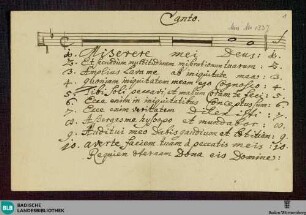 Canto.
Miserere mei Deus:
2. Et secundum multitudinem miserationum tuarum: 2.
3. Amplius lava me ab iniquitate mea: 3.
4. quoniam iniquitatem meam ego cognosco: 4.
5. Tibi soli peccavi et malum coram te feci: 5.
6. Ecce enim in iniquitatibus Conceptus sum: 6.
7. Ecce enim veritatem Dilexisti: 7.
8. Asperges me hysopo et mundabor: 8.
9. Auditui meo dabis gaudium et laetitiam: 9.
10. averte faciem tuam à peccatis meis: 10.
Requiem aeternam Dona eis Domine:
BLB
BADISCHE
LANDESBIBLIOTHEK
Baden-Württemberg